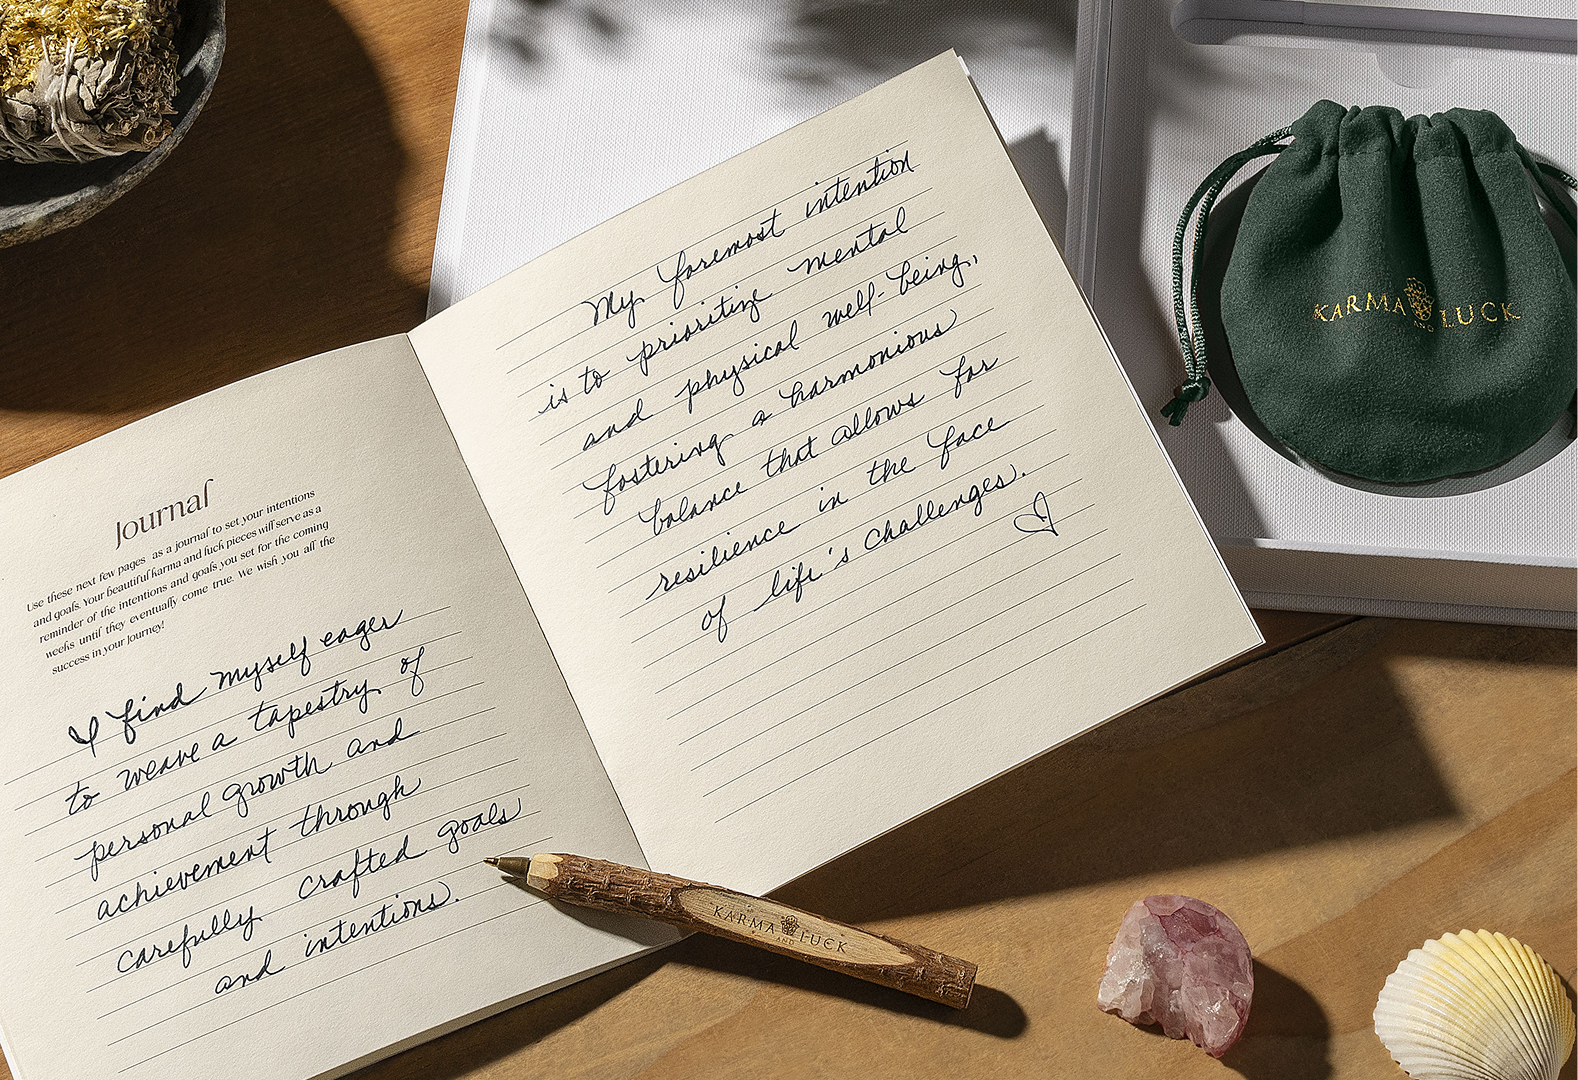 Journal
Use these next few pages as a journal to set your intentions
and goals. Your beautiful karma and luck pieces will serve as a
reminder of the intentions and goals you set for the coming
weeks until they eventually come true. We wish you all the
success in your Journey!
I find myself eager
to weave a tapestry of
personal growth and
achievement through
carefully crafted goals
and intentions.
My foremost intention
is to prioritize mental
and physical well-being,
fostering a harmonious
balance that allows for
resilience in the face
of life's challenges.
KARMA AND LUCK
KARMA AND LUCK